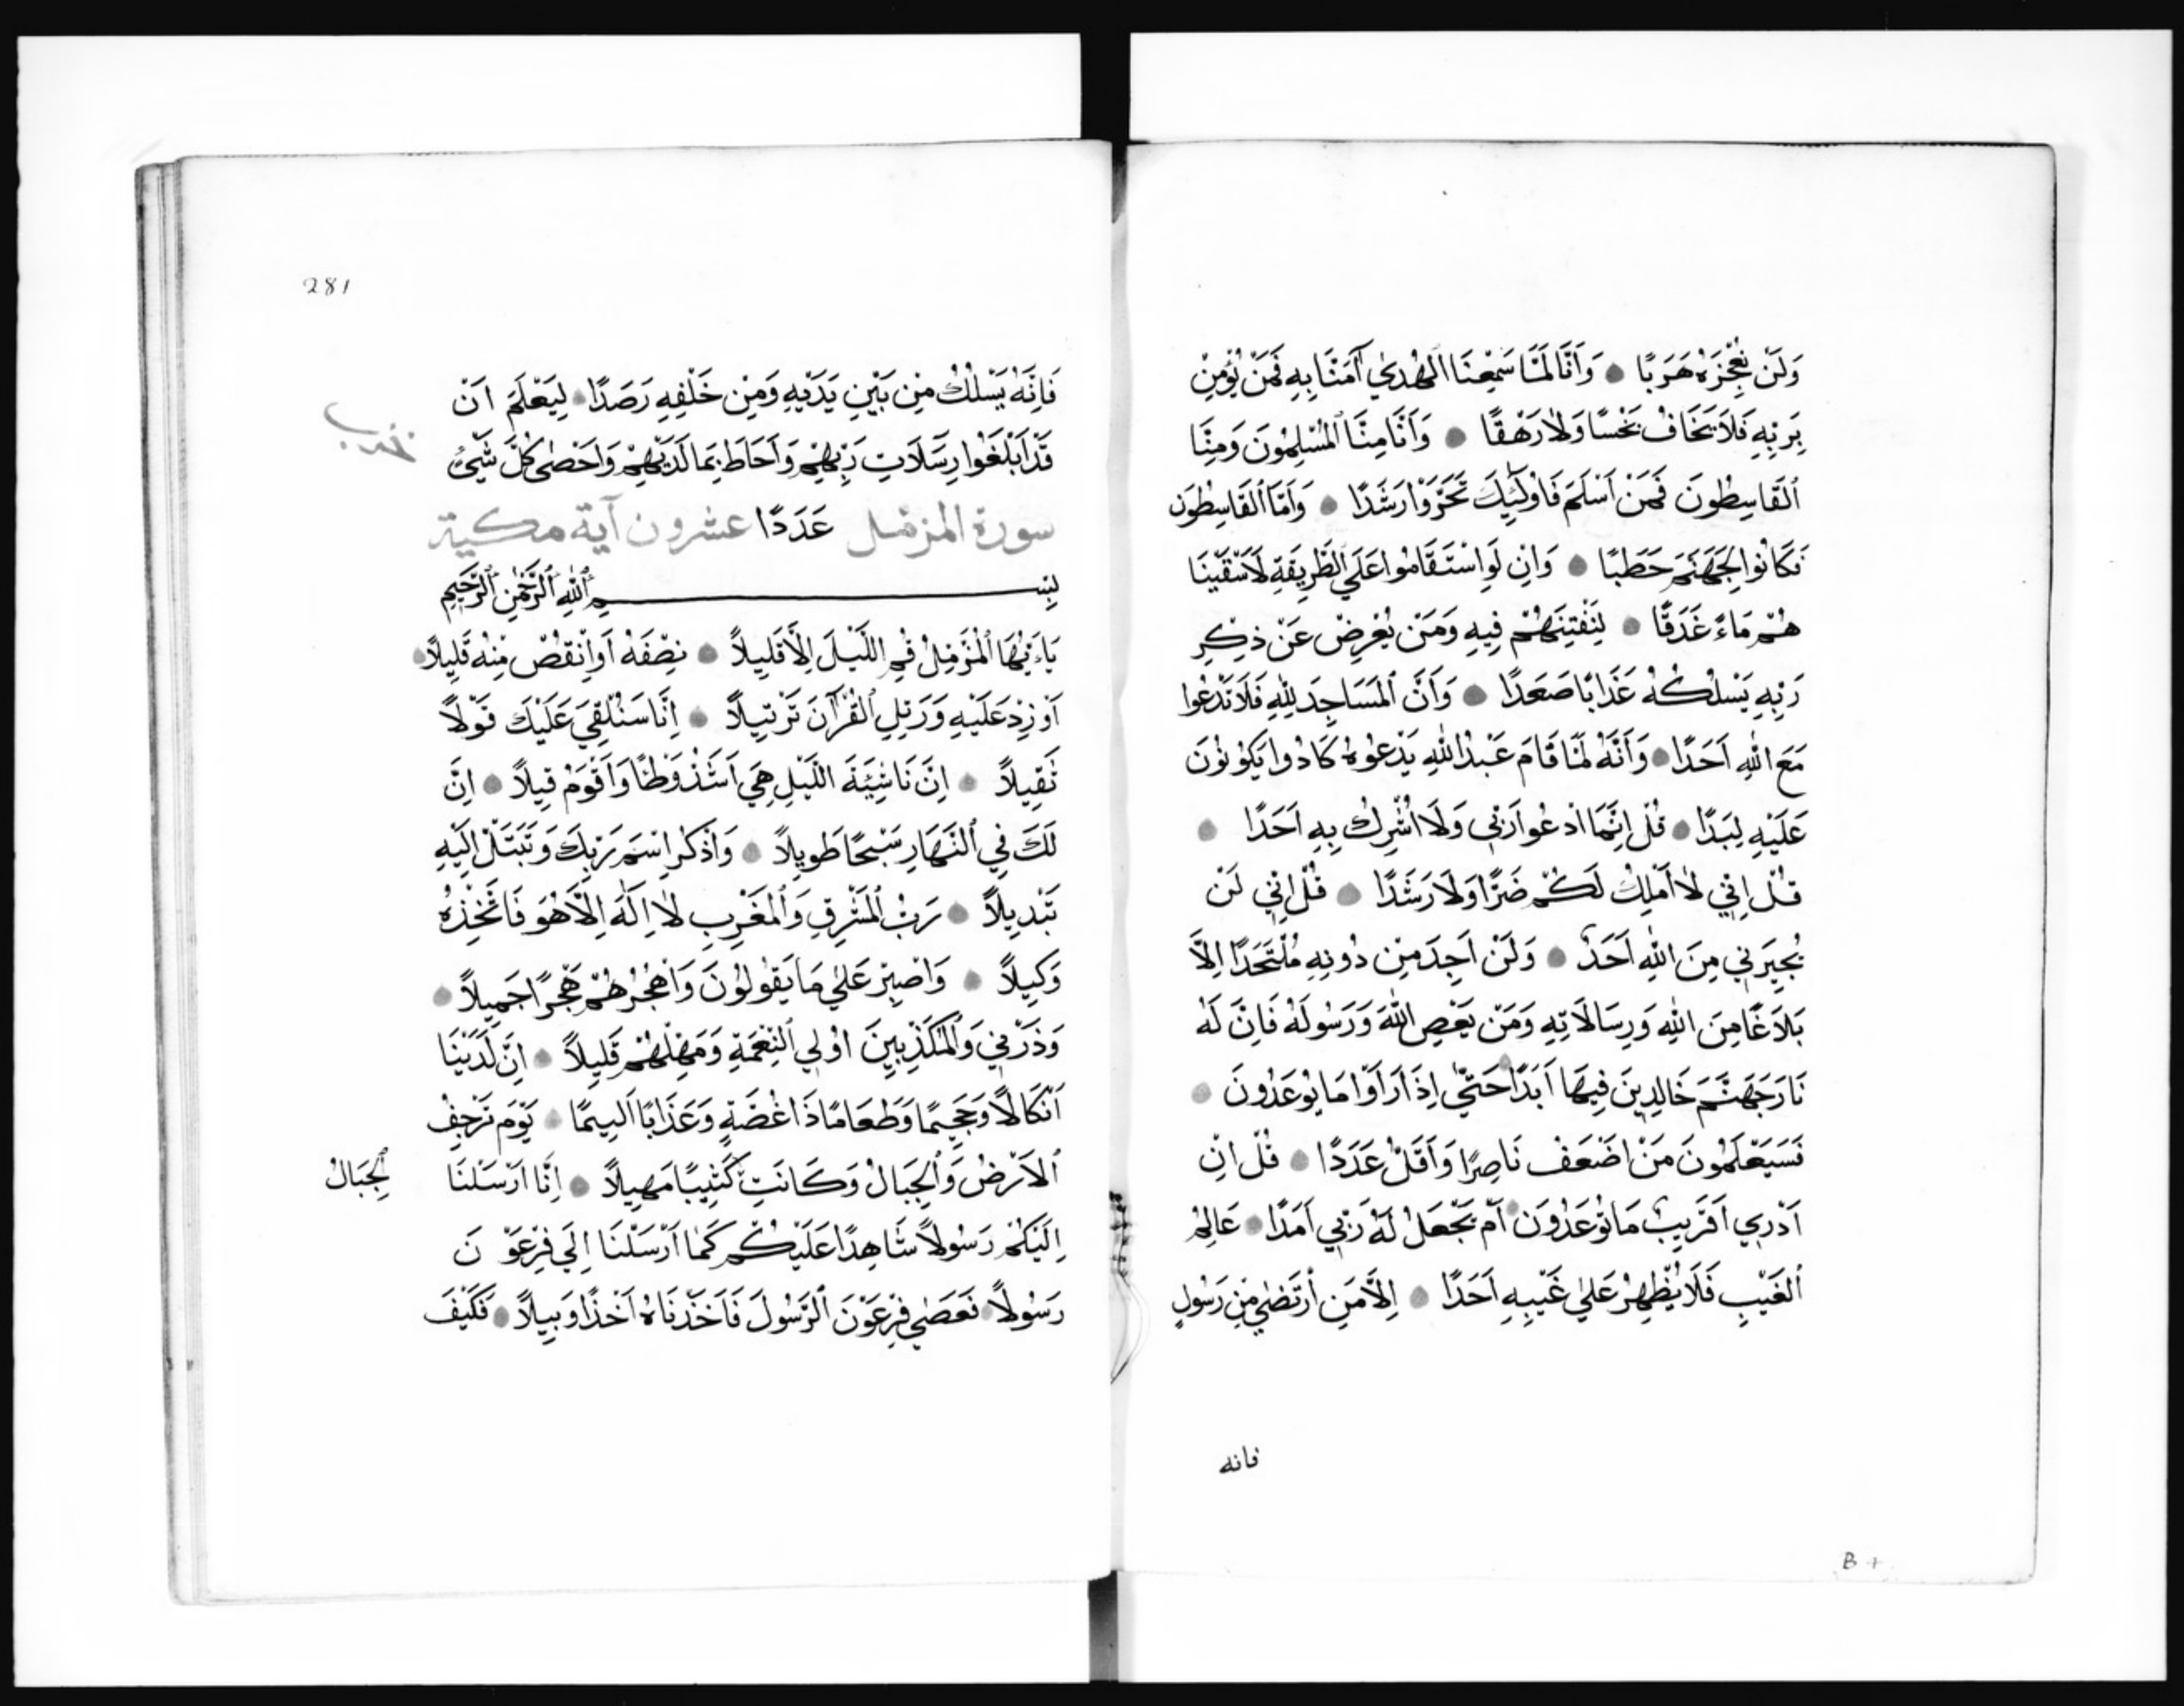 وَلَنْ نُعْجِزَهُ هَرَبًا وَأَنَّا لَمَّا سَمِعْنَا الْهُدَي آمَنَّا بِهِ فَمَنْ يُؤْمِنْ
بِرَبِّهِ فَلَا يَخَافُ بَخْسًا وَلَا رَهَقًا وَأَنَّا مِنَّا الْمُسْلِمُونَ وَمِنَّا
الْقَاسِطُونَ فَمَنْ أَسْلَمَ فَاُولَئِكَ تَحَرَّوْا رَشَدًا وَأَمَّا الْقَاسِطُونَ
فَكَانُوا لِجَهَنَّمَ حَطَبًا وَاَنِ لَوِ اسْتَقَامُوا عَلَي الطَّرِيقَةِ لَاَسْقَيْنَا
هُمْ مَاءً غَدَقًا لِنَفْتِنَهُمْ فِيهِ وَمَنْ يُعْرِضْ عَنْ ذِكْرِ
رَبِّهِ يَسْلُكْهُ عَذَابًا صَعَدًا وَأَنَّ الْمَسَاجِدَ لِلّٰهِ فَلَا تَدْعُوا
مَعَ اللّٰهِ اَحَدًا وَأَنَّهُ لَمَّا قَامَ عَبْدُ اللّٰهِ يَدْعُوهُ كَادُوا يَكُونُونَ
عَلَيْهِ لِبَدًا قُلْ اِنَّمَا ادْعُوا رَبِّي وَلَا اُشْرِكُ بِهِ اَحَدًا
قُلْ اِنِّي لَا أَمْلِكُ لَكُمْ ضَرًّا وَلَا رَشَدًا قُلْ اِنِّي لَنْ
يُجِيرَنِي مِنَ اللّٰهِ اَحَدٌ وَلَنْ اَجِدَ مِنْ دُونِهِ مُلْتَحَدًا اِلَّا
بَلَاغًا مِنَ اللّٰهِ وَرِسَالَاتِهِ وَمَنْ يَعْصِ اللّٰهَ وَرَسُولَهُ فَاِنَّ لَهُ
نَارَ جَهَنَّمَ خَالِدِينَ فِيهَا أَبَدًا حَتَّي اِذَا رَأَوْا مَا يُوعَدُونَ
فَسَيَعْلَمُونَ مَنْ اَضْعَفُ نَاصِرًا وَأَقَلُّ عَدَدًا قُلْ اِنْ
اَدْرِي اَقَرِيبٌ مَا تُوعَدُونَ أَمْ يَجْعَلُ لَهُ رَبِّي اَمَدًا عَالِمُ
الْغَيْبِ فَلَا يُظْهِرُ عَلَي غَيْبِهِ اَحَدًا اِلَّا مَنِ ارْتَضَي مِنْ رَسُولٍ
فانه
B
281
فَاِنَّهُ يَسْلُكُ مِنْ بَيْنِ يَدَيْهِ وَمِنْ خَلْفِهِ رَصَدًا لِيَعْلَمَ اَنْ
قَدْ اَبْلَغُوا رِسَلَاتِ رَبِّهِمْ وَأَحَاطَ بِمَا لَدَيْهِمْ وَاَحْصَي كُلَّ شَيْءٍ
سورة المزمل عَدَدًا عشرون آية مكية
بِسْمِ اللّٰهِ الرَّحْمٰنِ الرَّحِيمِ
يَاءَيُّهَا الْمُزَّمِّلُ قُمِ اللَّيْلَ اِلَّا قَلِيلًا نِصْفَهُ أَوِ انْقُصْ مِنْهُ قَلِيلًا
اَوْ زِدْ عَلَيْهِ وَرَتِّلِ الْقُرْآنَ تَرْتِيلًا اِنَّا سَنُلْقِي عَلَيْكَ قَوْلًا
ثَقِيلًا اِنَّ نَاشِئَةَ اللَّيْلِ هِيَ اَشَدُّ وَطْئًا وَأَقْوَمُ قِيلًا اِنَّ
لَكَ فِي النَّهَارِ سَبْحًا طَوِيلًا وَاذْكُرِ اسْمَ رَبِّكَ وَتَبَتَّلْ اِلَيْهِ
تَبْدِيلًا رَبُّ الْمَشْرِقِ وَالْمَغْرِبِ لَا اِلَهَ اِلَّا هُوَ فَاتَّخِذْهُ
وَكِيلًا وَاصْبِرْ عَلَي مَا يَقُولُونَ وَاهْجُرْهُمْ هَجْرًا جَمِيلًا
وَذَرْنِي وَالْمُكَذِّبِينَ اُولِي النَّعْمَةِ وَمَهِّلْهُمْ قَلِيلًا اِنَّ لَدَيْنَا
اَنْكَالًا وَجَحِيمًا وَطَعَامًا ذَا غُصَّةٍ وَعَذَابًا اَلِيمًا يَوْمَ تَرْجُفُ
الْاَرْضُ وَالْجِبَالُ وَكَانَتِ كَثِيبًا مَهِيلًا اِنَّا اَرْسَلْنَا
الْجِبَالُ
اِلَيْكُمْ رَسُولًا شَاهِدًا عَلَيْكُمْ كَمَا اَرْسَلْنَا اِلَي فِرْعَوْنَ
رَسُولًا فَعَصَي فِرْعَوْنَ الرَّسُولَ فَاَخَذْنَاهُ اَخْذًا وَبِيلًا فَكَيْفَ